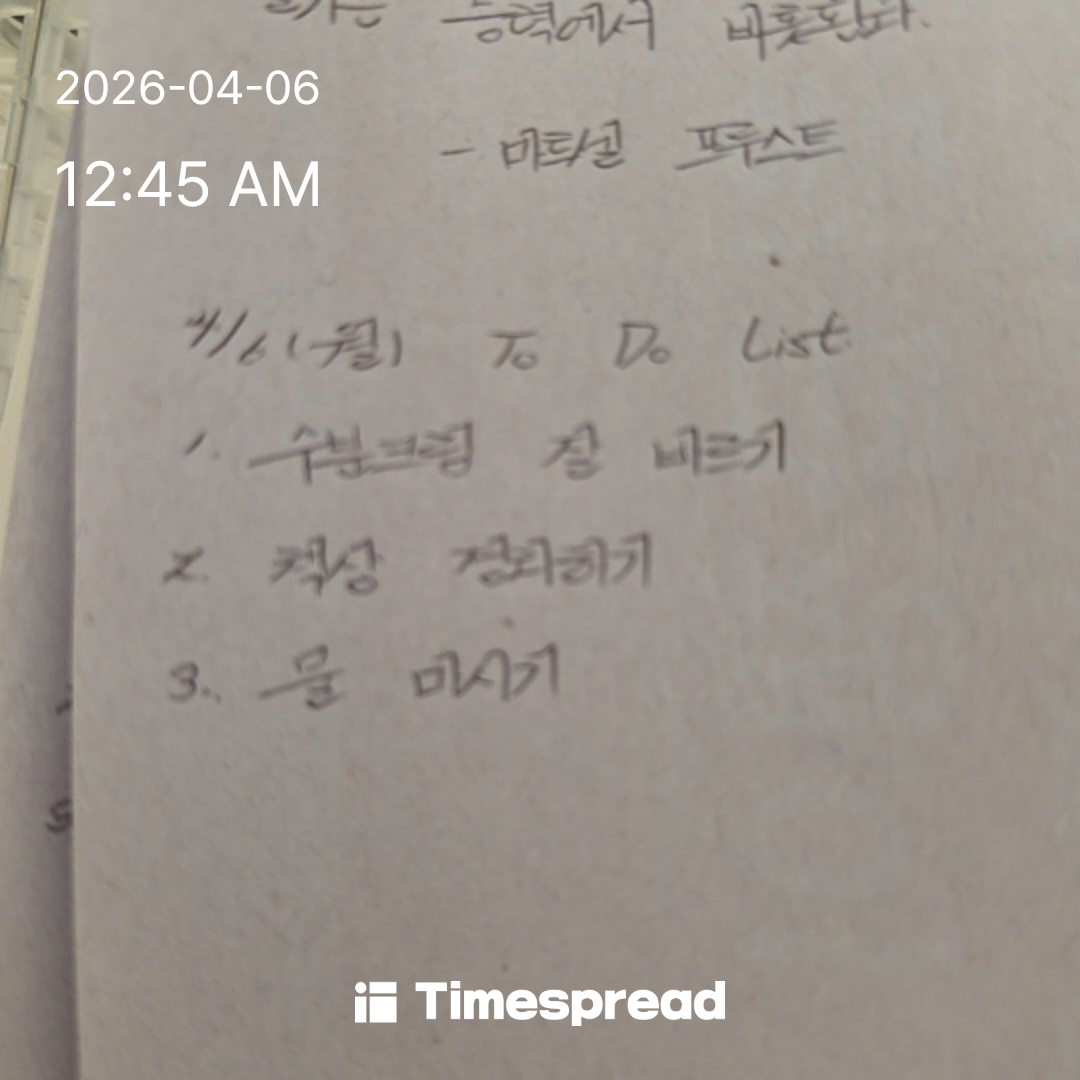 능력에서 비롯된다.
2026-04-06
- 마르셀 프루스트
12:45 AM
4/6(월) To Do List
1. 수분크림 잘 바르기
2. 책상 정리하기
3. 물 마시기
Timespread